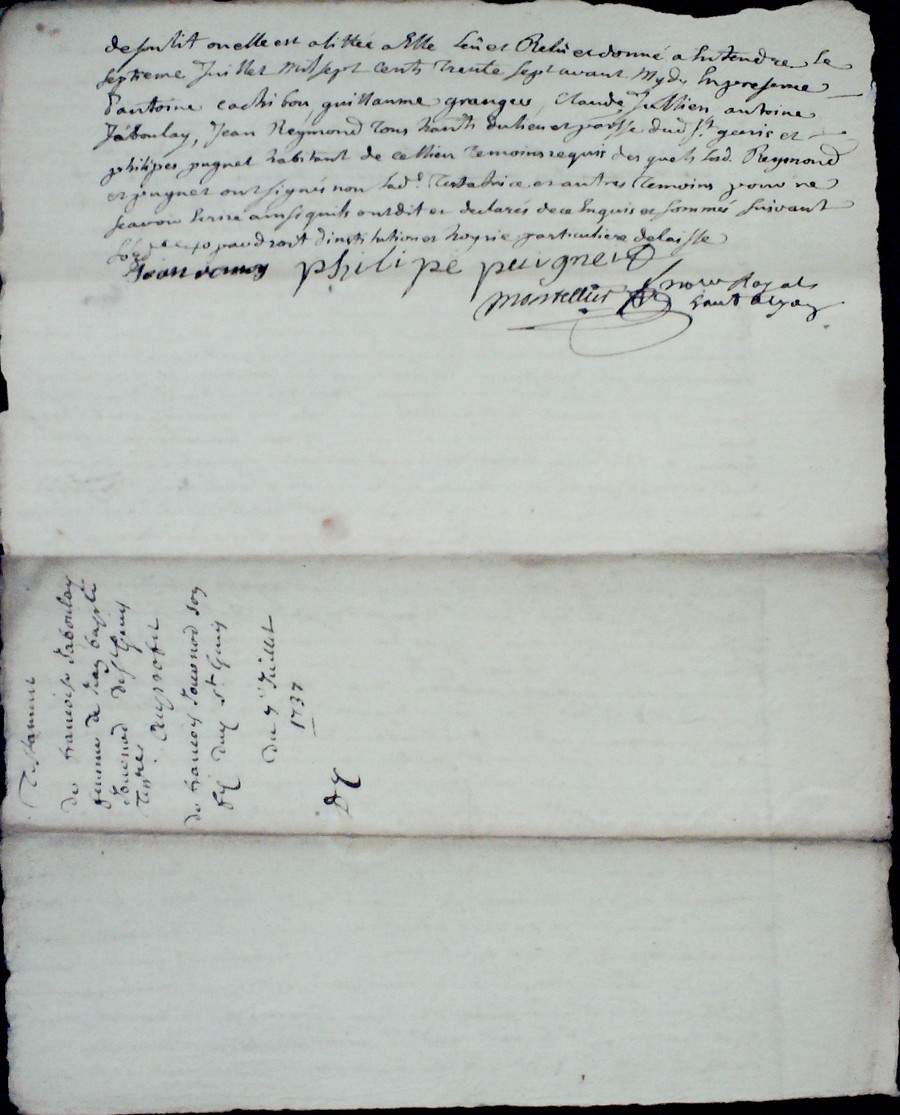 de son lit ou elle est alittée a Elle Leu et Releu et donné a Entendre Le
septieme Juillet Mil sept cents trente sept avant Mydy En presence
d'antoine guillaume granges, Claude Jullien, antoine
Jaboulay, Jean Reymond Tous hants du lieu et psse dud St genis et
philipes pugnet habitant de ce lieu temoins requis des quels Led. Reymond
et puignet ont signés non lad. Testatrice et autres temoins pour ne
scavoir Ecrire ainsi quils ont dit et declarés de ce Enquis et sommés suivant
pau droit d'institution et hoyrie particuliere delaissé
Jean
philipe puigned
nore Royal
Testament
de francoise Jaboulay
femme de Jean bapte
de St Genis
de francois son
fils dud St Genis
du 7e Juillet
1737